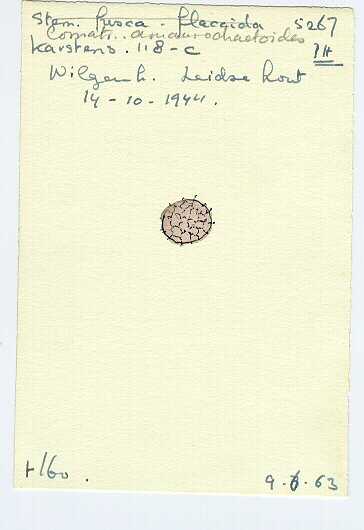 Stem. fusca - flaccida 5267
Comatr. amaurochaetoides
Karstens. 118-C
Wilgenh. Leidse hout
14-10-1944.
+160.
9.6.63